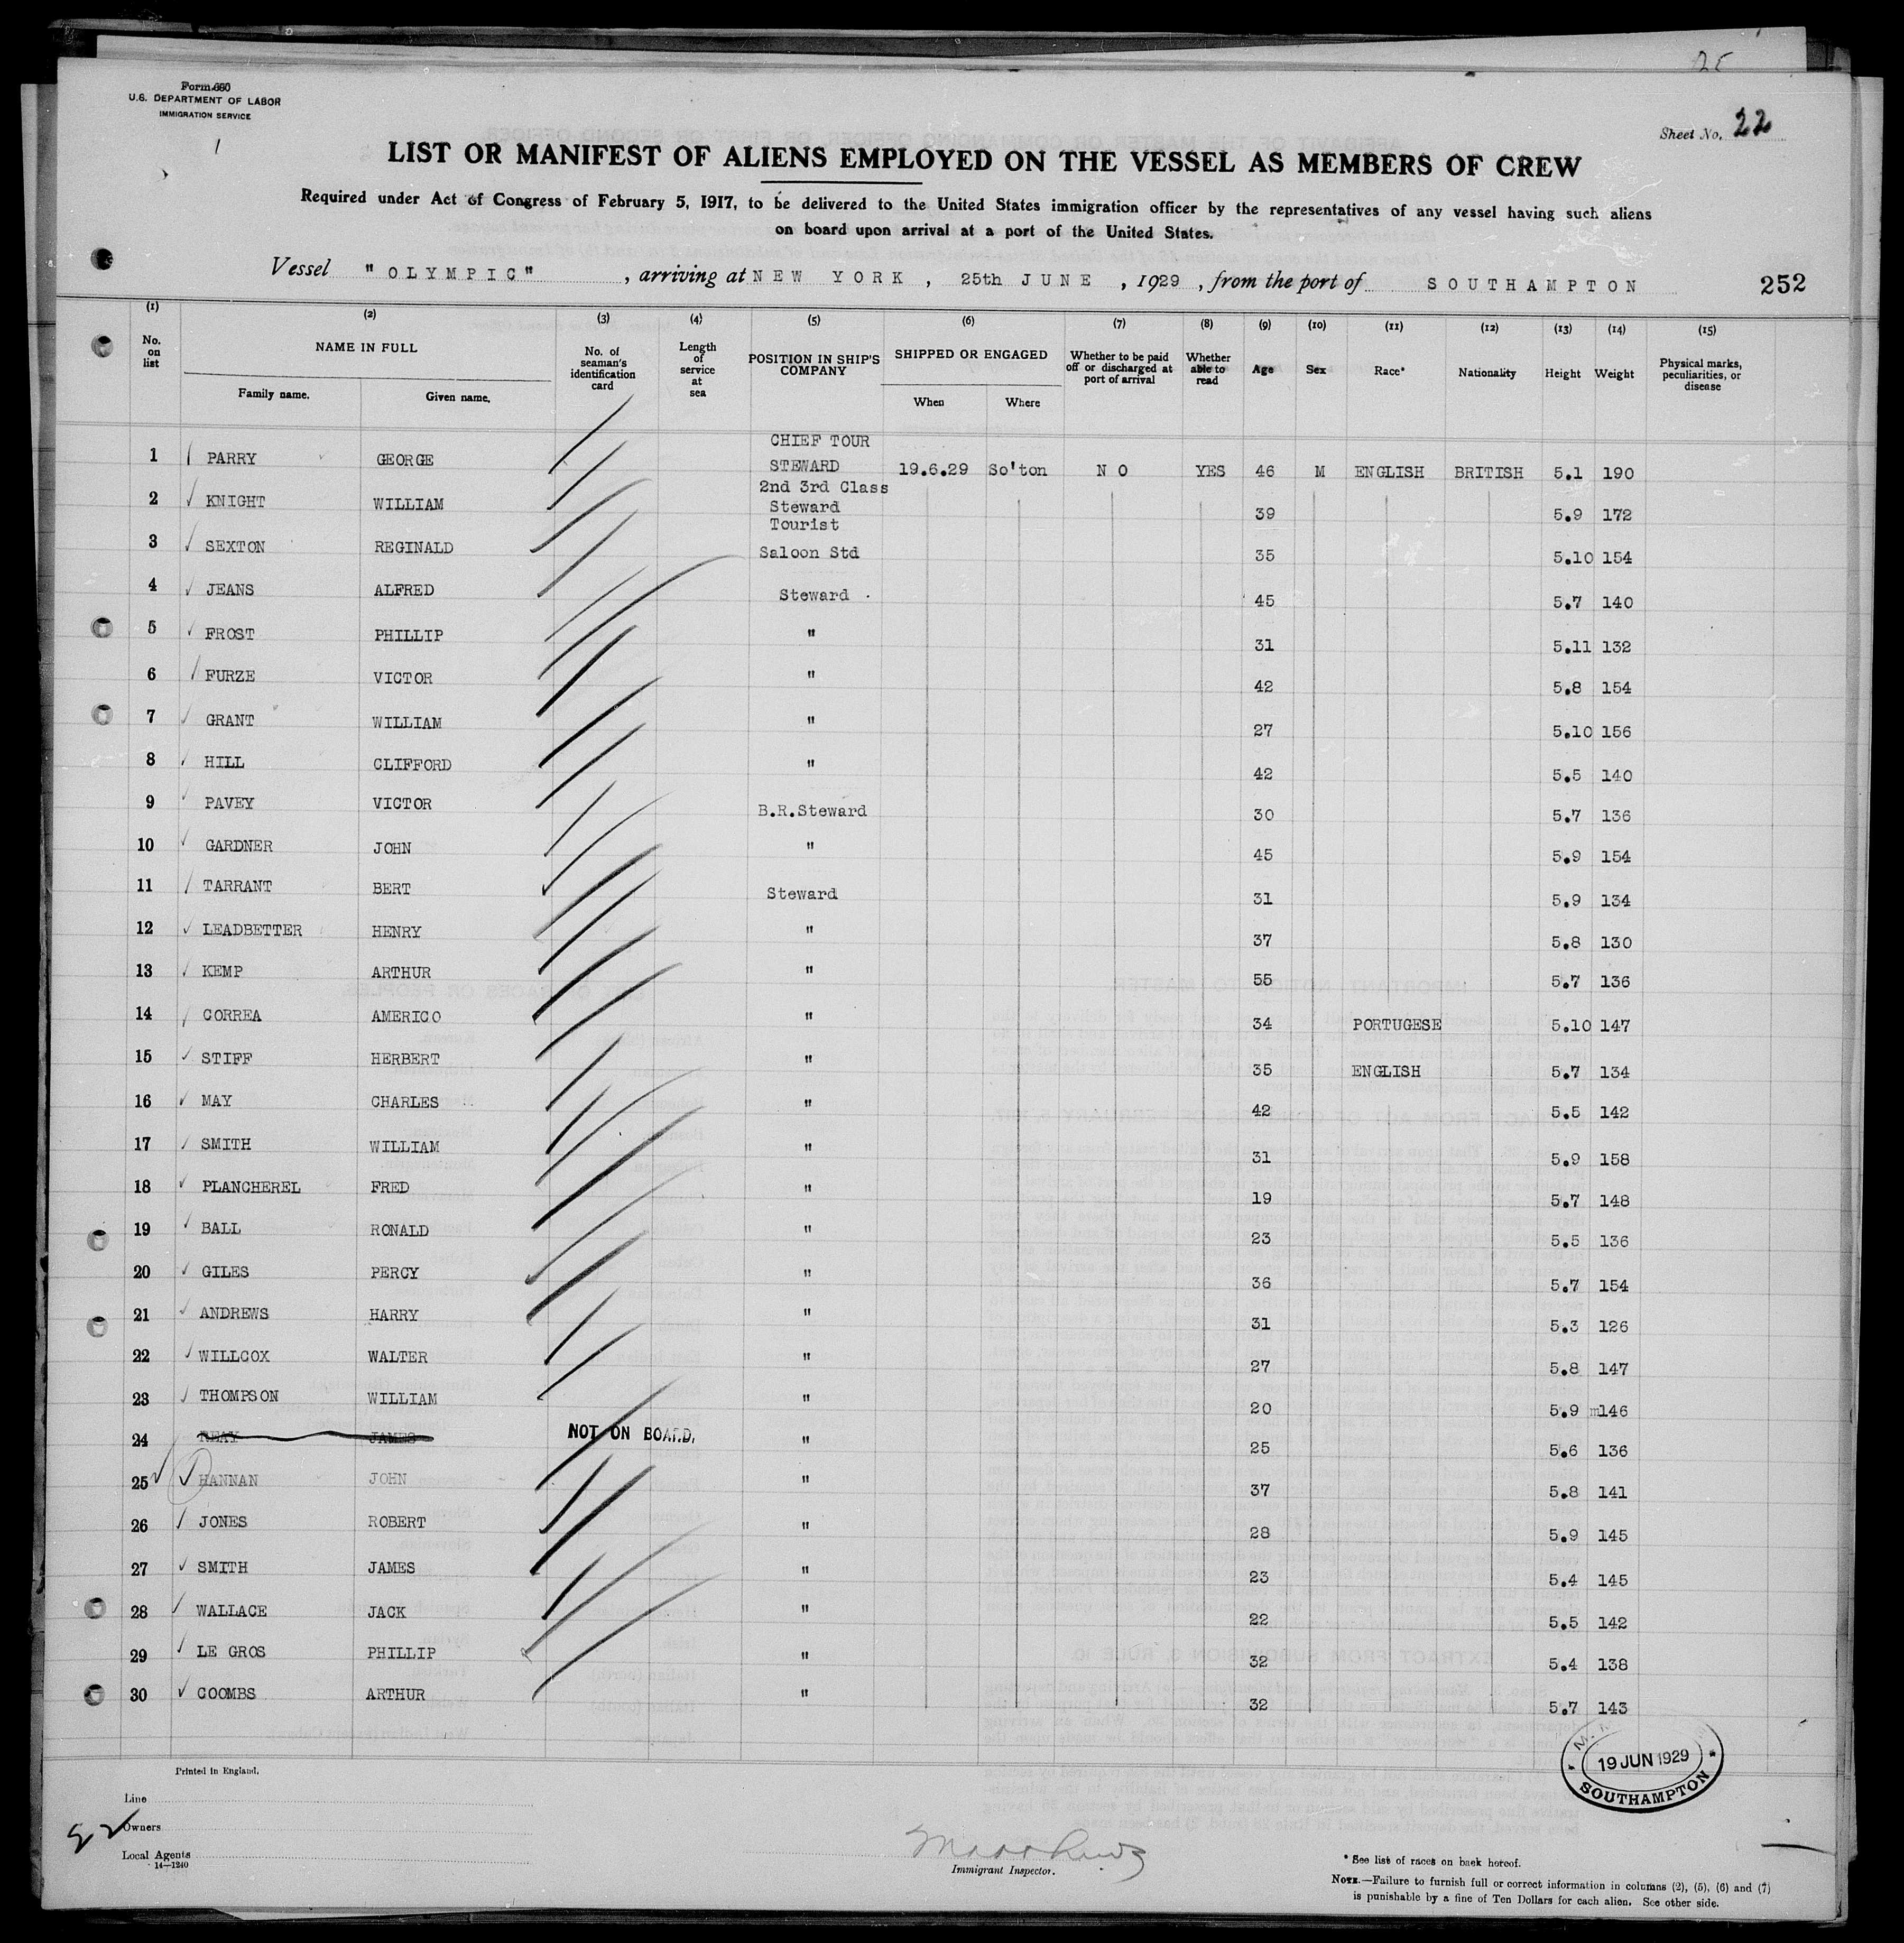 25
Form 680
U.S. DEPARTMENT OF LABOR
IMMIGRATION SERVICE
Sheet No. 22
LIST OR MANIFEST OF ALIENS EMPLOYED ON THE VESSEL AS MEMBERS OF CREW
Required under Act of Congress of February 5, 1917, to be delivered to the United States immigration officer by the representatives of any vessel having such aliens
on board upon arrival at a port of the United States.
Vessel "OLYMPIC", arriving at NEW YORK, 25th JUNE, 1929, from the port of SOUTHAMPTON 252
(1) (2) (3) (4) (5) (6) (7) (8) (9) (10) (11) (12) (13) (14) (15)
No. on list NAME IN FULL Family name. Given name. No. of seaman's identification card Length of service at sea POSITION IN SHIP'S COMPANY SHIPPED OR ENGAGED When Where Whether to be paid off or discharged at port of arrival Whether able to read Age Sex Race* Nationality Height Weight Physical marks, peculiarities, or disease
1 PARRY GEORGE CHIEF TOUR STEWARD 19.6.29 So'ton NO YES 46 M ENGLISH BRITISH 5.1 190
2 KNIGHT WILLIAM 2nd 3rd Class Steward 39 5.9 172
3 SEXTON REGINALD Tourist Saloon Std 35 5.10 154
4 JEANS ALFRED Steward 45 5.7 140
5 FROST PHILLIP " 31 5.11 132
6 FURZE VICTOR " 42 5.8 154
7 GRANT WILLIAM " 27 5.10 156
8 HILL CLIFFORD " 42 5.5 140
9 PAVEY VICTOR B.R.Steward 30 5.7 136
10 GARDNER JOHN " 45 5.9 154
11 TARRANT BERT Steward 31 5.9 134
12 LEADBETTER HENRY " 37 5.8 130
13 KEMP ARTHUR " 55 5.7 136
14 CORREA AMERICO " 34 PORTUGESE 5.10 147
15 STIFF HERBERT " 35 ENGLISH 5.7 134
16 MAY CHARLES " 42 5.5 142
17 SMITH WILLIAM " 31 5.9 158
18 PLANCHEREL FRED " 19 5.7 148
19 BALL RONALD " 23 5.5 136
20 GILES PERCY " 36 5.7 154
21 ANDREWS HARRY " 31 5.3 126
22 WILLCOX WALTER " 27 5.8 147
23 THOMPSON WILLIAM " 20 5.9 m146
24 REAY JAMES NOT ON BOARD. " 25 5.6 136
25 HANNAN JOHN " 37 5.8 141
26 JONES ROBERT " 28 5.9 145
27 SMITH JAMES " 23 5.4 145
28 WALLACE JACK " 22 5.5 142
29 LE GROS PHILLIP " 32 5.4 138
30 COOMBS ARTHUR " 32 5.7 143
19 JUN 1929
SOUTHAMPTON
Printed in England.
Line
Owners
Local Agents
14—1240
Immigrant Inspector.
* See list of races on back hereof.
NOTE.—Failure to furnish full or correct information in columns (2), (5), (6) and (7)
is punishable by a fine of Ten Dollars for each alien. See other side.